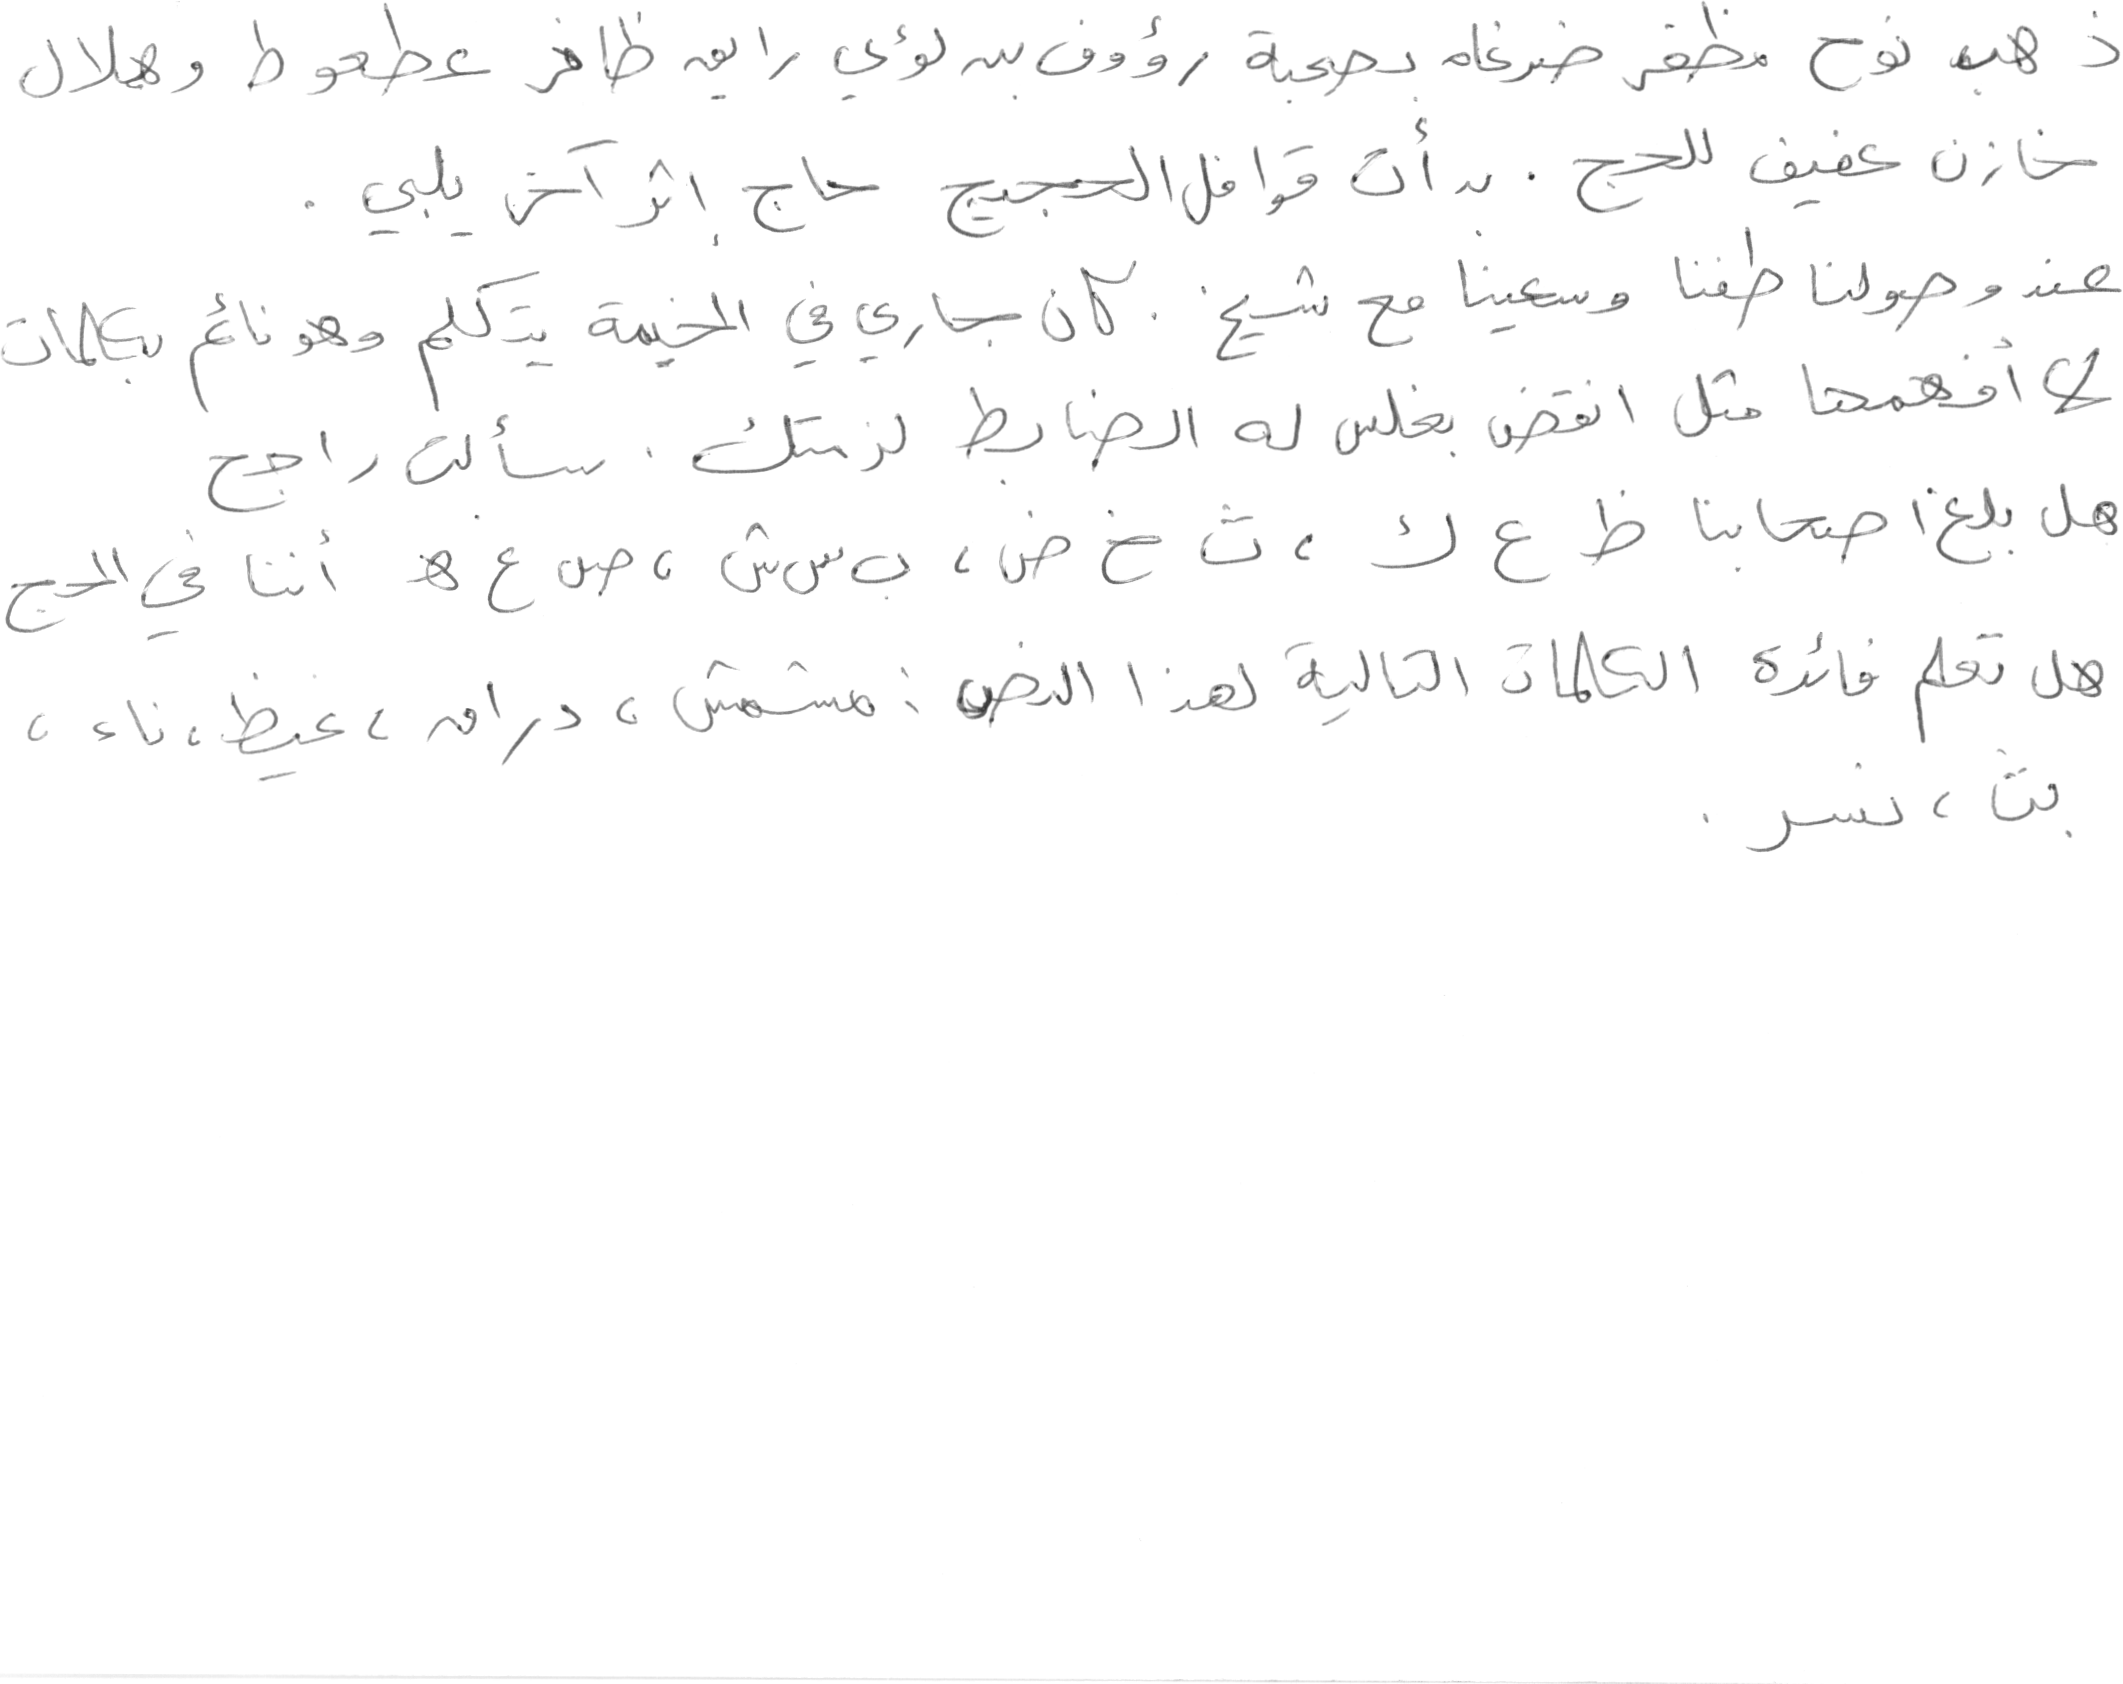 ذهب نوح مظفر ضرغام بصحبة رؤوف بن لؤي رايق ظافر عطعوط وهلال
خازن عفيف للحج . بدأت قوافل الحجيج حاج إثر آخر يلبي .
عند وصولنا طفنا وسعينا مع شيخ . كان جاري في الخيمة يتكلم وهو نائم بكلمات
لا أفهمها مثل انقض بغلس له الضابط لزمتك . سألت راجح
هل بلغ اصحابنا ظ ع ك ، ث خ ض ، ب س ش ، ص غ هـ أننا في الحج
هل تعلم فائدة الكلمات التالية لهذا النص : مشمش ، دراق ، غيظ ، ناء ،
بث ، نسر .